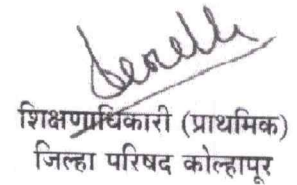 शिक्षणाधिकारी (प्राथमिक)
जिल्हा परिषद कोल्हापूर